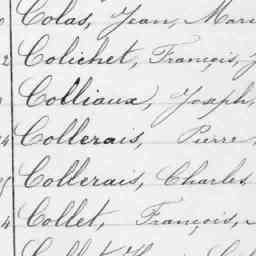 Colas, Jean, Mari
2 Colichet, François, J
Colliaux, Joseph,
Collerais, Pierre,
Collerais, Charles
4 Collet, François,